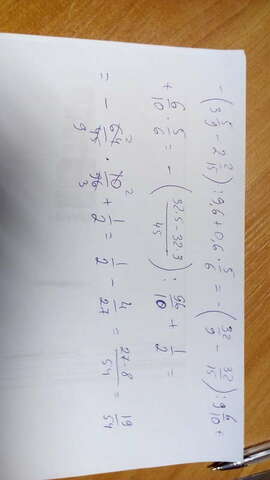 -(3 5/9 - 2 2/15) : 9,6 + 0,6 · 5/6 = -(32/9 - 32/15) : 9 6/10 +
+ 6/10 · 5/6 = -((32·5 - 32·3)/45) : 96/10 + 1/2 =
= - 64/45 · 10/96 + 1/2 = 1/2 - 4/27 = (27-8)/54 = 19/54